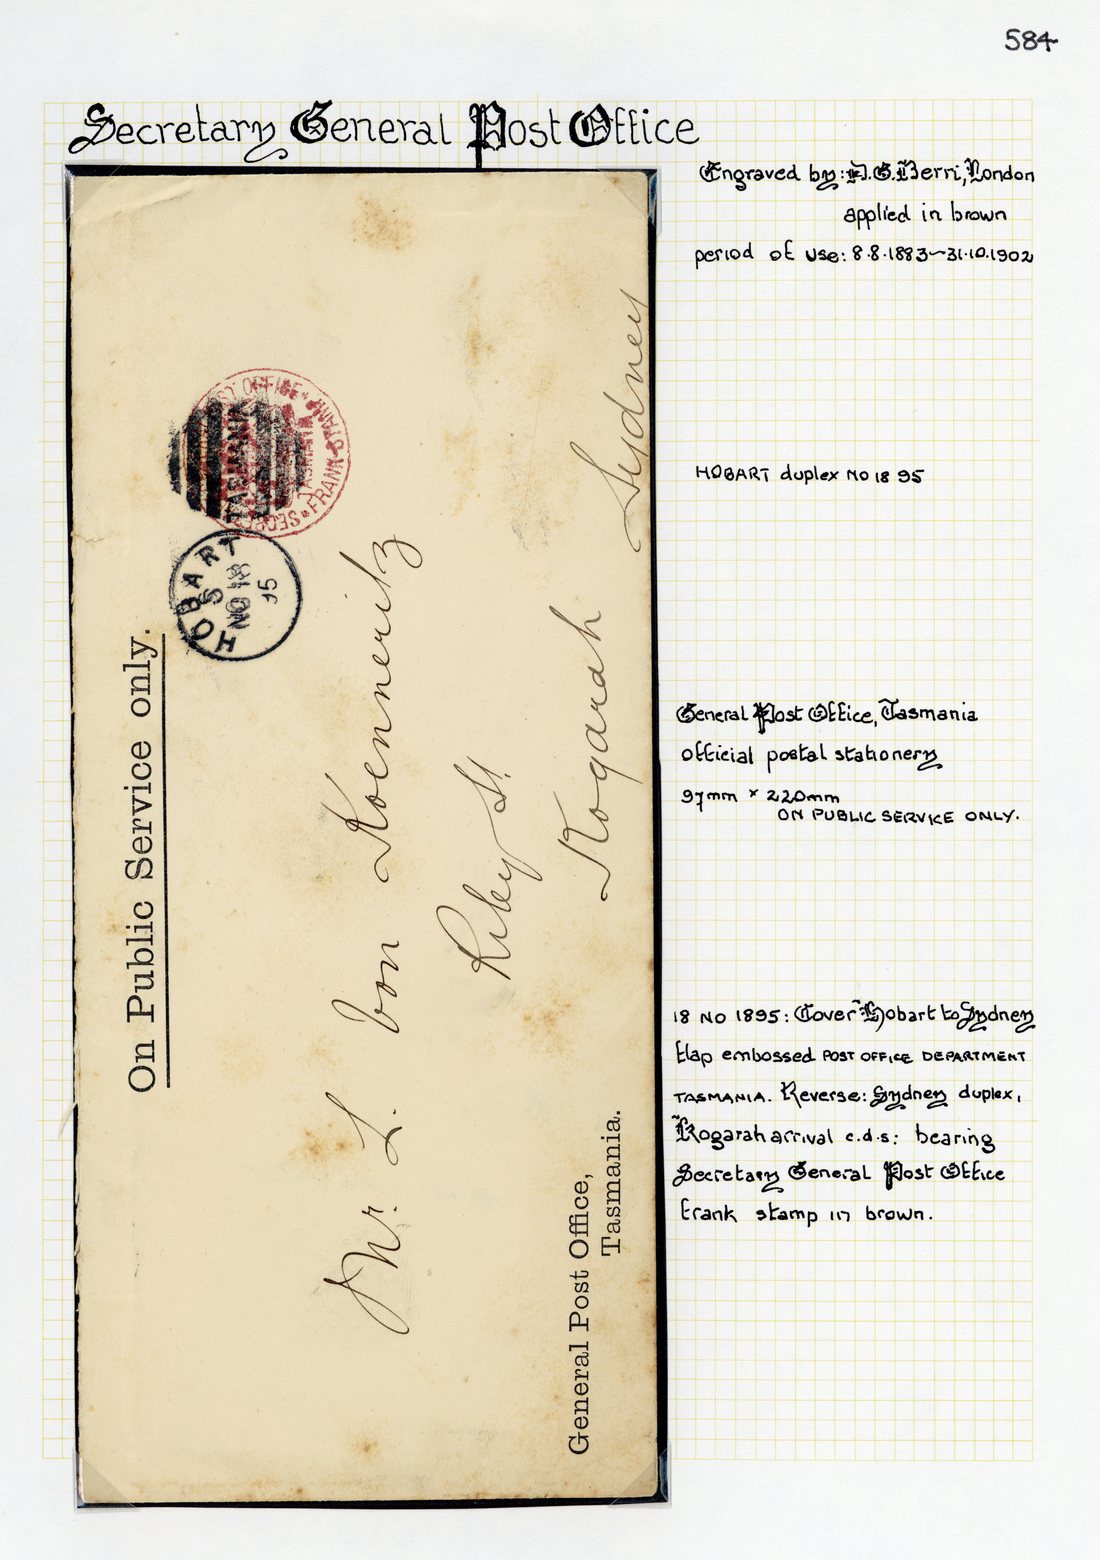 584
Secretary General Post Office
Engraved by: D.G. Berri, London
applied in brown
period of use: 8·8·1883–31·10·1902
HOBART duplex NO 18 95
General Post Office, Tasmania
official postal stationery
97mm × 220mm
ON PUBLIC SERVICE ONLY.
18 NO 1895: Cover Hobart to Sydney
flap embossed POST OFFICE DEPARTMENT
TASMANIA. Reverse: Sydney duplex,
Kogarah arrival c.d.s: bearing
Secretary General Post Office
frank stamp in brown.
On Public Service only.
HOBART
S
NO 18
95
TASMANIA
FRANK STAMP
Mr. L. von Koenneritz
Riley St.
Kogarah
Sydney
General Post Office,
Tasmania.